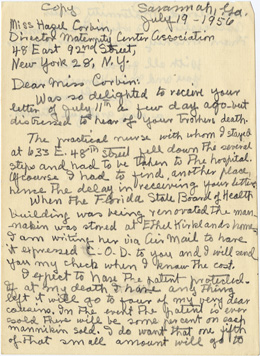 Copy Savannah, Ga.
July 19-1956
Miss Hazel Corbin,
Director Maternity Center Association
48 East 92nd Street,
New York 28, N.Y.
Dear Miss Corbin:
Was so delighted to receive your
letter of July 11th a few day ago-but
distressed to hear of your brothers death.
The practical nurse with whom I stayed
at 633 E. 48th Street fell down the several
steps and had to be taken to the hospital.
Of course I had to find, another place,
hence the delay in receiving your letter.
When the Florida State Board of Health
building was being renovated the man-
nakin was stored at Ethel Kirklands home.
I am writing her via Air Mail to have
it expressed C.O.D. to you and I will send
you my check when I know the cost.
I expect to have the patent
If at my death I have any thing
left it will go to four of my very dear
cousins. In the event the patent is ever
sold there will be some percent on each
mannikin sold. I do want that one fifth
of that small amount will go to